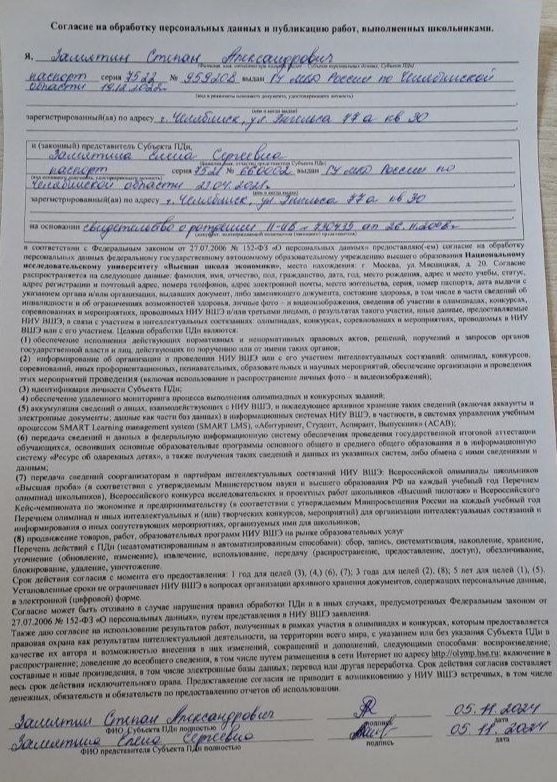 Согласие на обработку персональных данных и публикацию работ, выполненных школьниками.
Я, Замятин Степан Александрович
паспорт серия 7522 № 959208 выдан ГУ МВД России по Челябинской
области 19.12.2022г.
(вид и реквизиты основного документа, удостоверяющего личность)
(кем и когда выдан)
зарегистрированный(ая) по адресу г. Челябинск, ул. Энгельса 77а кв 30
и (законный) представитель Субъекта ПДн,
Замятина Елена Сергеевна
паспорт серия 7521 № 660002 выдан ГУ МВД России по
Челябинской области 22.04.2021г.
зарегистрированный(ая) по адресу г. Челябинск, ул. Энгельса 77а кв 30
на основании свидетельство о рождении II-ИВ № 790933 от 26.11.2008г.
в соответствии с Федеральным законом от 27.07.2006 № 152-ФЗ «О персональных данных» предоставляю(-ем) согласие на обработку
персональных данных федеральному государственному автономному образовательному учреждению высшего образования Национальному
исследовательскому университету «Высшая школа экономики», место нахождения: г Москва, ул. Мясницкая, д. 20. Согласие
распространяется на следующие данные: фамилия, имя, отчество, пол, гражданство, дата, год, место рождения, адрес и место учебы, статус,
адрес регистрации и почтовый адрес, номера телефонов, адрес электронной почты, место жительства, серия, номер паспорта, дата выдачи с
указанием органа и/или организации, выдавших документ, либо заменяющего документа, состояние здоровья, в том числе в части сведений об
инвалидности и об ограничениях возможностей здоровья, личные фото - и видеоизображения, сведения об участии в олимпиадах, конкурсах,
соревнованиях и мероприятиях, проводимых НИУ ВШЭ и/или третьими лицами, о результатах такого участия, иные данные, предоставляемые
НИУ ВШЭ, в связи с участием в интеллектуальных состязаниях: олимпиадах, конкурсах, соревнованиях и мероприятиях, проводимых в НИУ
ВШЭ или с его участием. Целями обработки ПДн являются:
(1) обеспечение исполнения действующих нормативных и ненормативных правовых актов, решений, поручений и запросов органов
государственной власти и лиц, действующих по поручению или от имени таких органов;
(2) информирование об организации и проведении НИУ ВШЭ или с его участием интеллектуальных состязаний: олимпиад, конкурсов,
соревнований, иных профориентационных, познавательных, образовательных и научных мероприятий, обеспечение организации и проведения
этих мероприятий проведения (включая использование и распространение личных фото – и видеоизображений);
(3) идентификация личности Субъекта ПДн;
4) обеспечение удаленного мониторинга процесса выполнения олимпиадных и конкурсных заданий;
(5) аккумуляция сведений о лицах, взаимодействующих с НИУ ВШЭ, и последующее архивное хранение таких сведений (включая аккаунты и
электронные документы; данные как части баз данных) в информационных системах НИУ ВШЭ, в частности, в системах управления учебным
процессом SMART Learning management system (SMART LMS), «Абитуриент, Студент, Аспирант, Выпускник» (АСАВ);
(6) передача сведений и данных в федеральную информационную систему обеспечения проведения государственной итоговой аттестации
обучающихся, освоивших основные образовательные программы основного общего и среднего общего образования и в информационную
систему «Ресурс об одаренных детях», а также получения таких сведений и данных из указанных систем, либо обмена с ними сведениями и
данными;
(7) передача сведений соорганизаторам и партнёрам интеллектуальных состязаний НИУ ВШЭ: Всероссийской олимпиады школьников
«Высшая проба» (в соответствии с утверждаемым Министерством науки и высшего образования РФ на каждый учебный год Перечнем
олимпиад школьников), Всероссийского конкурса исследовательских и проектных работ школьников «Высший пилотаж» и Всероссийского
Кейс-чемпионата по экономике и предпринимательству (в соответствии с утверждаемым Минпросвещения России на каждый учебный год
Перечнем олимпиад и иных интеллектуальных и (или) творческих конкурсов, мероприятий) для организации интеллектуальных состязаний и
информирования о иных сопутствующих мероприятиях, организуемых ими для школьников;
(8) продвижение товаров, работ, образовательных программ НИУ ВШЭ на рынке образовательных услуг
Перечень действий с ПДн (неавтоматизированным и автоматизированным способами): сбор, запись, систематизация, накопление, хранение,
уточнение (обновление, изменение), извлечение, использование, передачу (распространение, предоставление, доступ), обезличивание,
блокирование, удаление, уничтожение.
Срок действия согласия с момента его предоставления: 1 год для целей (3), (4,) (6), (7); 3 года для целей (2), (8); 5 лет для целей (1), (5).
Установленные сроки не ограничивают НИУ ВШЭ в вопросах организации архивного хранения документов, содержащих персональные данные,
в электронной (цифровой) форме.
Согласие может быть отозвано в случае нарушения правил обработки ПДн и в иных случаях, предусмотренных Федеральным законом от
27.07.2006 № 152-ФЗ «О персональных данных», путем представления в НИУ ВШЭ заявления.
Также даю согласие на использование результатов работ, полученных в рамках участия в олимпиадах и конкурсах, которым предоставляется
правовая охрана как результатам интеллектуальной деятельности, на территории всего мира, с указанием или без указания Субъекта ПДн в
качестве их автора и возможностью внесения в них изменений, сокращений и дополнений, следующими способами: воспроизведение;
распространение; доведение до всеобщего сведения, в том числе путем размещения в сети Интернет по адресу http://olymp.hse.ru, включение в
составные и иные произведения, в том числе электронные базы данных; перевод или другая переработка. Срок действия согласия составляет
весь срок действия исключительного права. Предоставление согласия не приводит к возникновению у НИУ ВШЭ встречных, в том числе
денежных, обязательств и обязательств по предоставлению отчетов об использовании.
Замятин Степан Александрович 05.11.2024
ФИО Субъекта ПДн полностью подпись дата
Замятина Елена Сергеевна 05.11.2024
ФИО представителя Субъекта ПДн полностью подпись дата